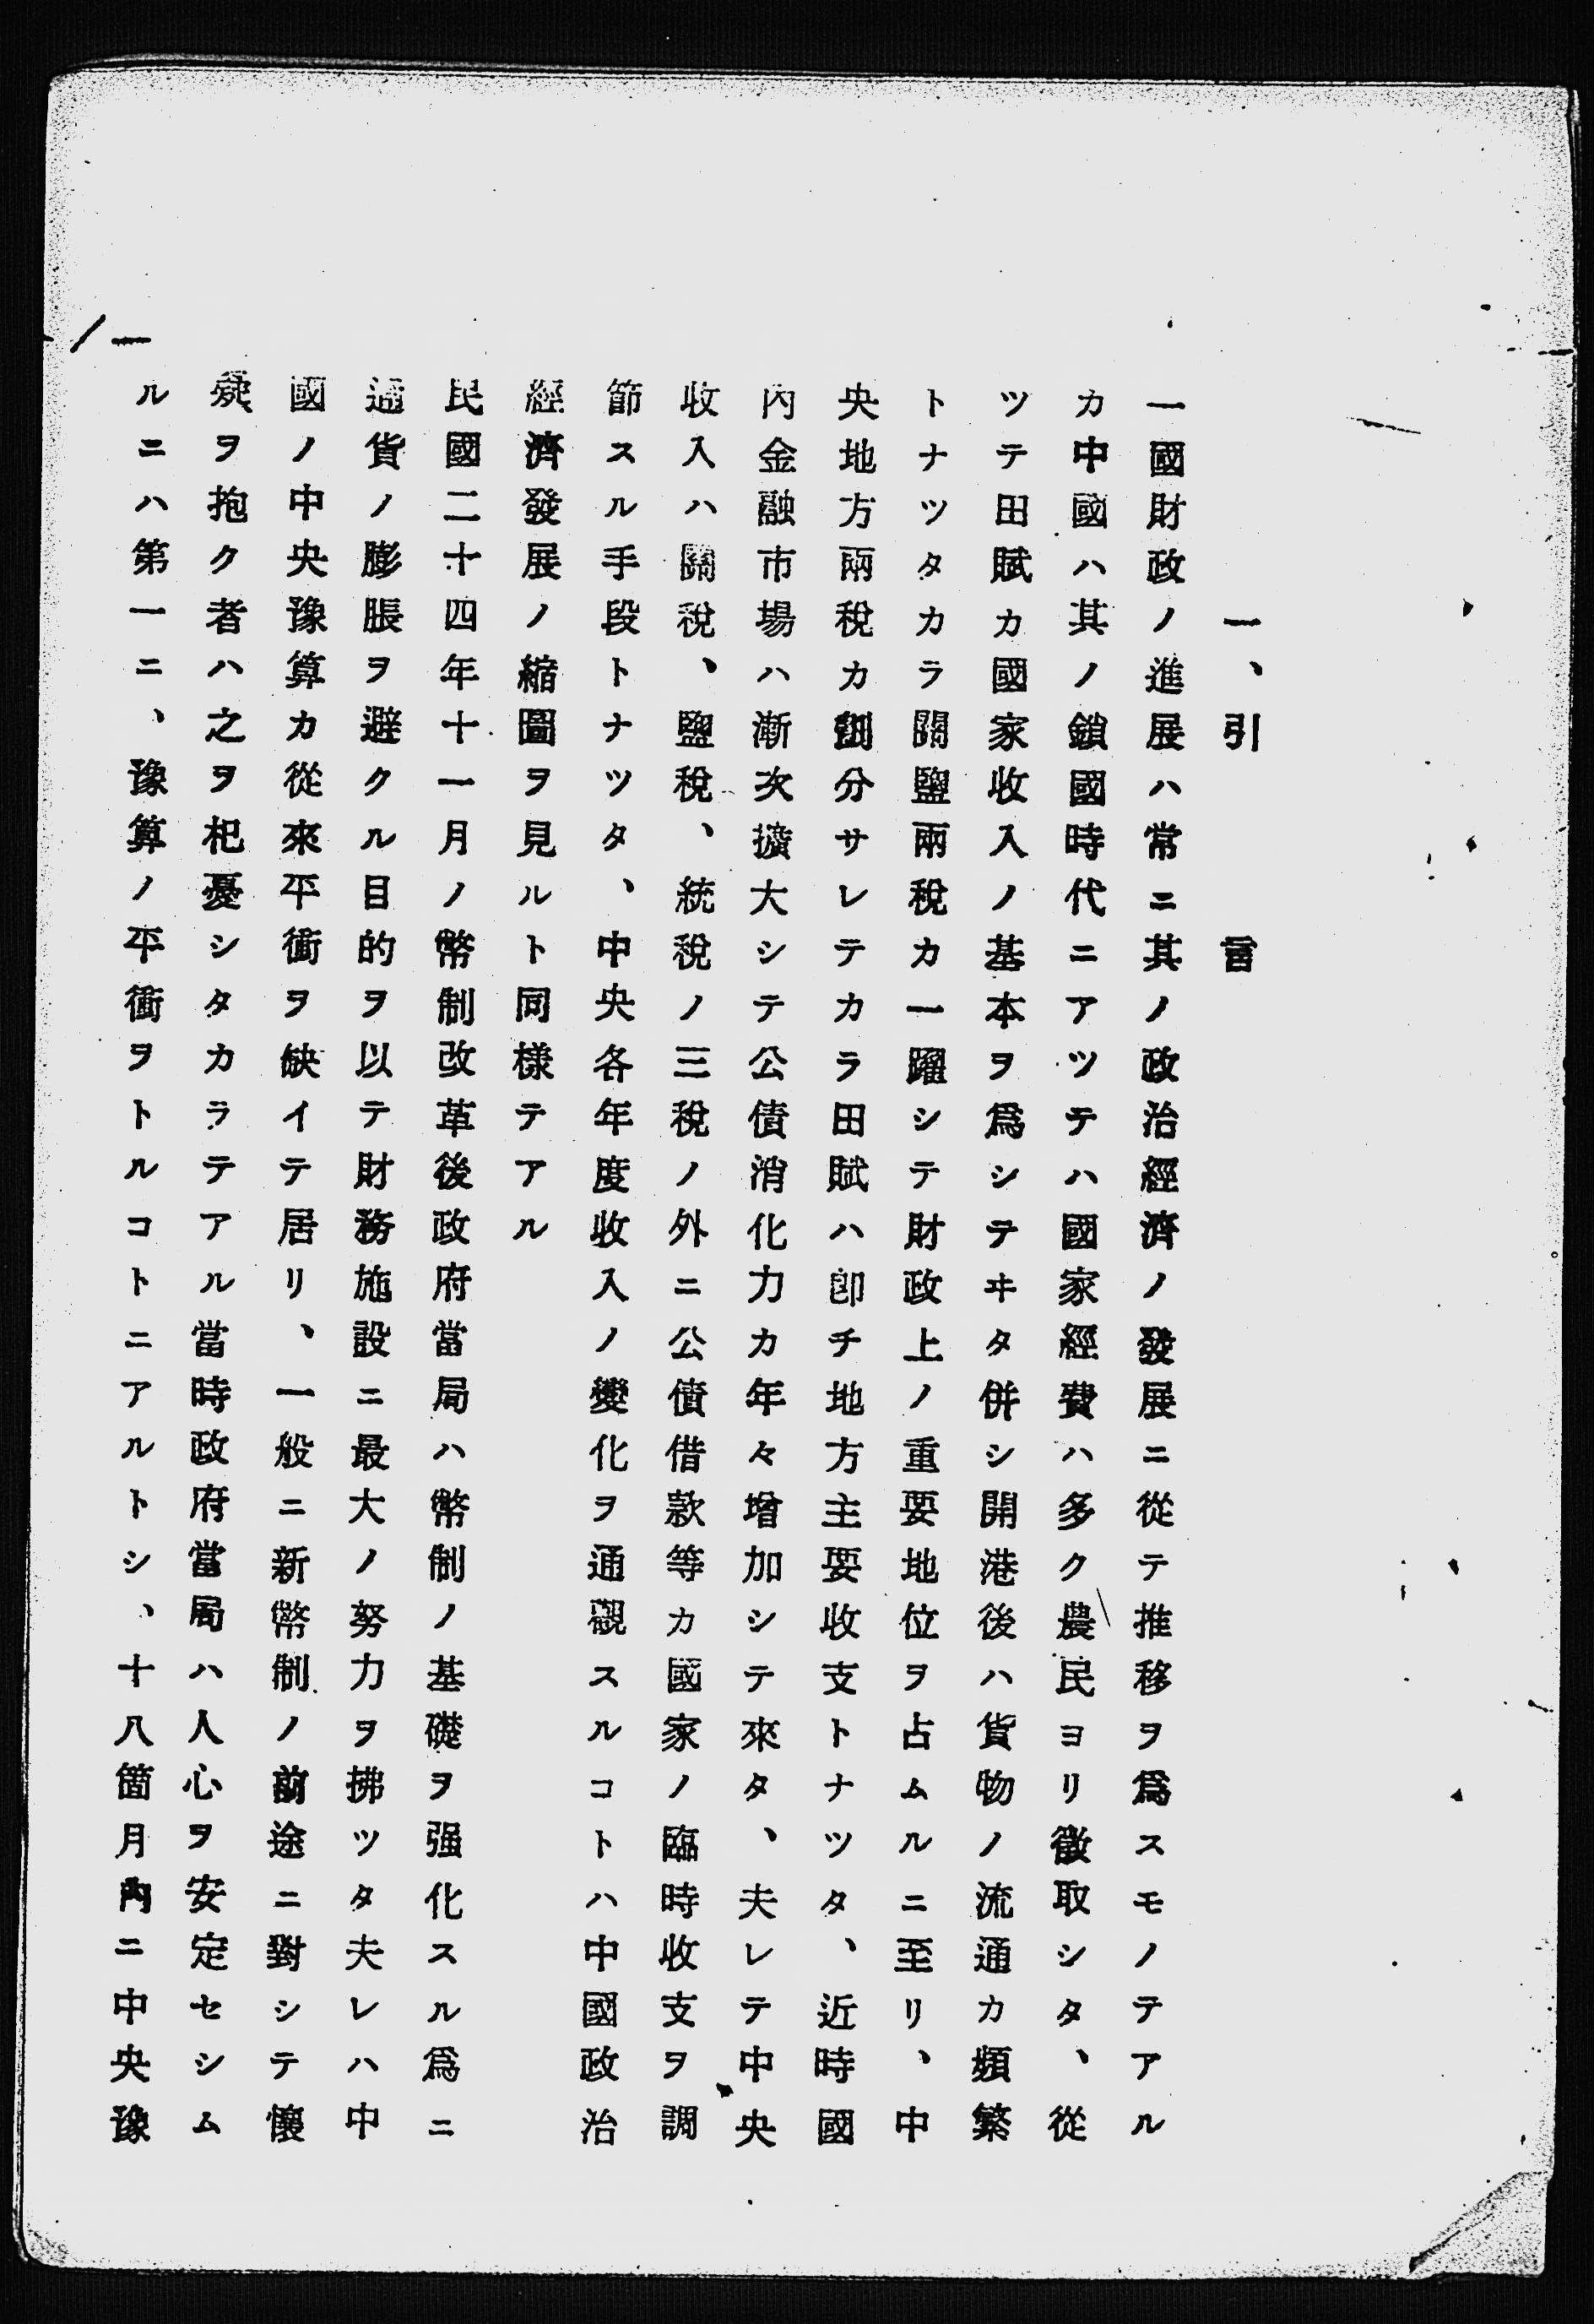 一、引言
一國財政ノ進展ハ常ニ其ノ政治經濟ノ發展ニ從テ推移ヲ爲スモノテアル
カ中國ハ其ノ鎖國時代ニアツテハ國家經費ハ多ク農民ヨリ徵取シタ、從
ツテ田賦カ國家收入ノ基本ヲ爲シテヰタ併シ開港後ハ貨物ノ流通カ頻繁
トナツタカラ關鹽兩稅カ一躍シテ財政上ノ重要地位ヲ占ムルニ至リ、中
央地方兩稅カ劃分サレテカラ田賦ハ卽チ地方主要收支トナツタ、近時國
內金融市場ハ漸次擴大シテ公債消化力カ年々增加シテ來タ、夫レテ中央
收入ハ關稅、鹽稅、統稅ノ三稅ノ外ニ公債借款等カ國家ノ臨時收支ヲ調
節スル手段トナツタ、中央各年度收入ノ變化ヲ通觀スルコトハ中國政治
經濟發展ノ縮圖ヲ見ルト同樣テアル
民國二十四年十一月ノ幣制改革後政府當局ハ幣制ノ基礎ヲ强化スル爲ニ
通貨ノ膨脹ヲ避クル目的ヲ以テ財務施設ニ最大ノ努力ヲ拂ツタ夫レハ中
國ノ中央豫算カ從來平衡ヲ缺イテ居リ、一般ニ新幣制ノ前途ニ對シテ懷
疑ヲ抱ク者ハ之ヲ杞憂シタカラテアル當時政府當局ハ人心ヲ安定セシム
ルニハ第一ニ、豫算ノ平衡ヲトルコトニアルトシ、十八箇月內ニ中央豫
一